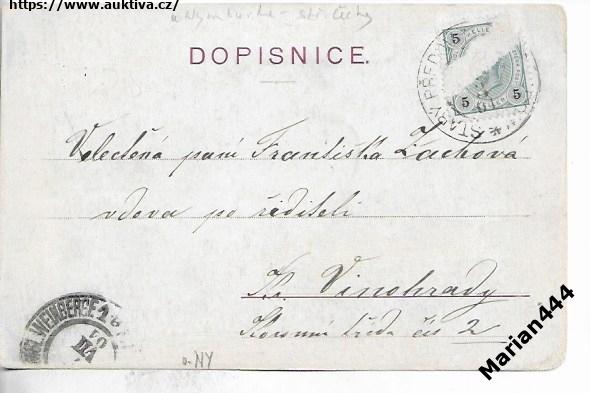 https://www.auktiva.cz/
DOPISNICE.
5
5 5
STARÝ PŘED
Velectěná paní Františka Zachová
vdova po řediteli
Kr. Vinohrady
Korunní třída čís 2
WEINBERGE
VII
01
u NY
Marian444